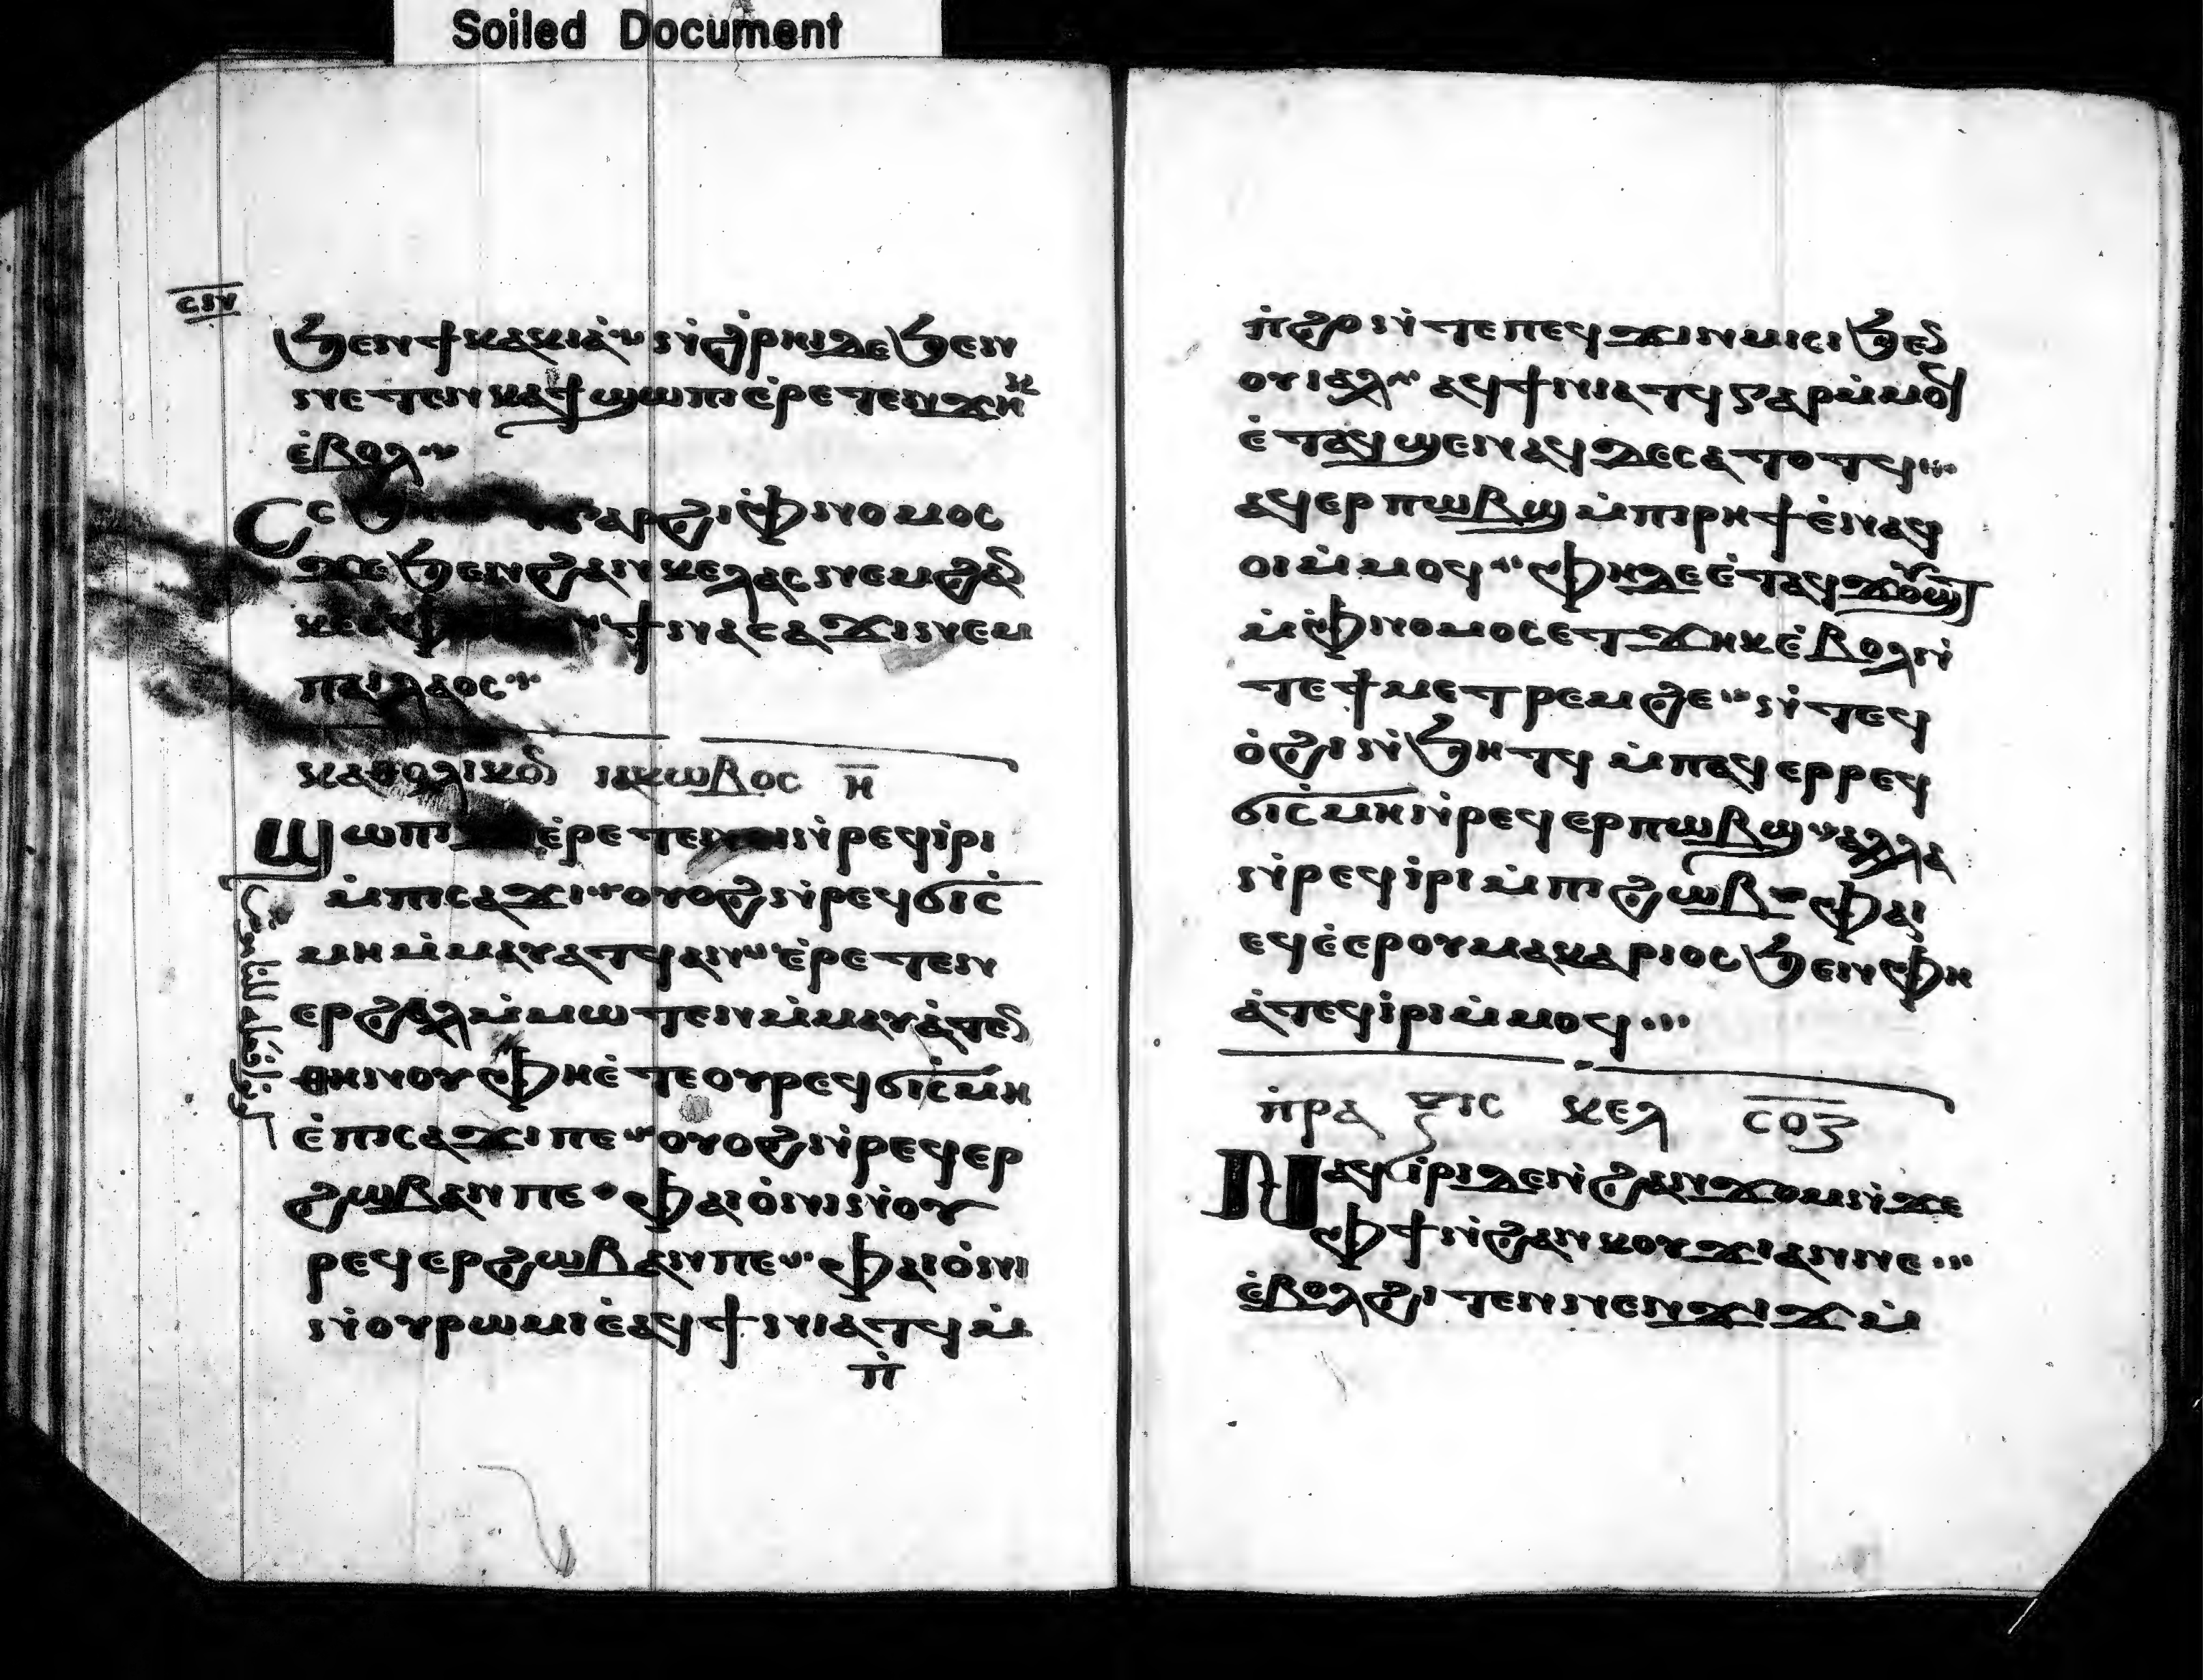 Soiled Document
ⲥⲛ
ϧⲉⲛϯⲕⲁⲕⲓⲁ̀ ⲛ̀ϩ̀ⲣⲏⲓⲇⲉϧⲉⲛ
ⲛⲉⲧⲉⲛⲕⲁϯϣⲱⲡⲉ̀ⲣⲉⲧⲉⲛϫⲏⲕ
ⲉ̀ⲃⲟⲗ
ⲥⲥ ⲅⲁⲣϩⲓⲫⲛⲟⲙⲟⲥ
ϫⲉϧⲉⲛϩⲁⲛⲕⲉⲗⲁⲥⲛⲉⲙϩⲁⲛ
ϯⲛⲁⲥⲁϫⲓⲛⲉⲙ
ⲡⲁⲓⲗⲁⲟⲥ
ⲕⲁⲑⲟⲗⲓⲕⲟⲛ ⲓⲁⲕⲱⲃⲟⲥ ⲏ̅
ϣⲱⲡⲓ ⲉ̀ⲣⲉⲧⲉⲛ ⲛ̀ⲣⲉϥⲓ̀ⲣⲓ
ⲙ̀ⲡⲓⲥⲁϫⲓ ⲟⲩⲟϩⲛ̀ⲣⲉϥϭⲓⲥ̀
ⲙⲏⲙ̀ⲙⲁⲩⲁⲧϥⲁⲛ ⲉ̀ⲣⲉⲧⲉⲛ
ⲉⲣϩⲁⲗⲙ̀ⲙⲱⲧⲉⲛⲙ̀ⲙⲁⲩⲁ̀ⲧⲉⲛ
ⲑⲏⲛⲟⲩⲫⲏⲉ̀ⲧⲉⲟⲩⲣⲉϥϭⲓⲥ̀ⲙⲏ
ⲉ̀ⲡⲓⲥⲁϫⲓⲡⲉ ⲟⲩⲟϩⲛ̀ⲣⲉϥⲉⲣ
ϩⲱⲃⲁⲛⲡⲉ ⲫⲁⲓⲟ̀ⲛⲓⲛ̀ⲟⲩ
ⲣⲉϥⲉⲣϩⲱⲃⲁⲛⲡⲉ ⲫⲁⲓⲟ̀ⲛⲓ
ⲛ̀ⲟⲩⲣⲱⲙⲓⲉ̀ⲁϥϯⲛⲓⲁⲧϥⲙ̀
ⲡ̀
ⲡ̀ϩⲟⲛ̀ⲧⲉⲡⲉϥϫⲓⲛⲙⲓⲥⲓϧⲉⲛ
ⲟⲩⲓⲁⲗ ⲁϥϯⲛⲓⲁⲧϥⲅⲁⲣⲙ̀ⲙⲟϥ
ⲉ̀ⲧⲁϥϣⲉⲛⲁϥⲇⲉⲥⲁⲧⲟⲧϥ
ⲁϥⲉⲣⲡⲱⲃϣⲙ̀ⲡⲓⲣⲏϯⲉ̀ⲛⲁϥ
ⲟⲓⲙ̀ⲙⲟϥ ⲫⲏⲇⲉⲉ̀ⲧⲁϥϫⲟⲩϣⲧ
ⲙ̀ⲫⲛⲟⲙⲟⲥⲉⲧϫⲏⲕⲉ̀ⲃⲟⲗⲛ̀
ⲧⲉϯⲙⲉⲧⲣⲉⲙϩⲉ ⲛ̀ⲧⲉϥ
ⲟ̀ϩⲓⲛ̀ϧⲏⲧϥ ⲙ̀ⲡⲁϥⲉⲣⲣⲉϥ
ϭⲓⲥ̀ⲙⲏⲛ̀ⲣⲉϥⲉⲣⲡⲱⲃϣ ⲁⲗⲗⲁ
ⲛ̀ⲣⲉϥⲓ̀ⲣⲓⲙ̀ⲡⲓϩⲱⲃ ⲫⲁⲓ
ⲉϥⲉ̀ⲉⲣⲟⲩⲙⲁⲕⲁⲣⲓⲟⲥϧⲉⲛⲫⲏ
ⲁ̀ⲧⲉϥⲓ̀ⲣⲓⲙ̀ⲙⲟϥ
ⲡ̀ⲣⲁⲝⲓⲥ ⲕⲉⲗ ⲥⲟⲍ
ⲛⲁϥⲓ̀ⲣⲓⲇⲉⲛ̀ϩⲁⲛϫⲟⲙⲛ̀ϫⲉ
ⲫϯⲛ̀ϩⲁⲛⲕⲟⲩϫⲓⲁⲛⲛⲉ
ⲉ̀ⲃⲟⲗϩⲓⲧⲉⲛⲛⲉⲛϫⲓϫⲙ̀